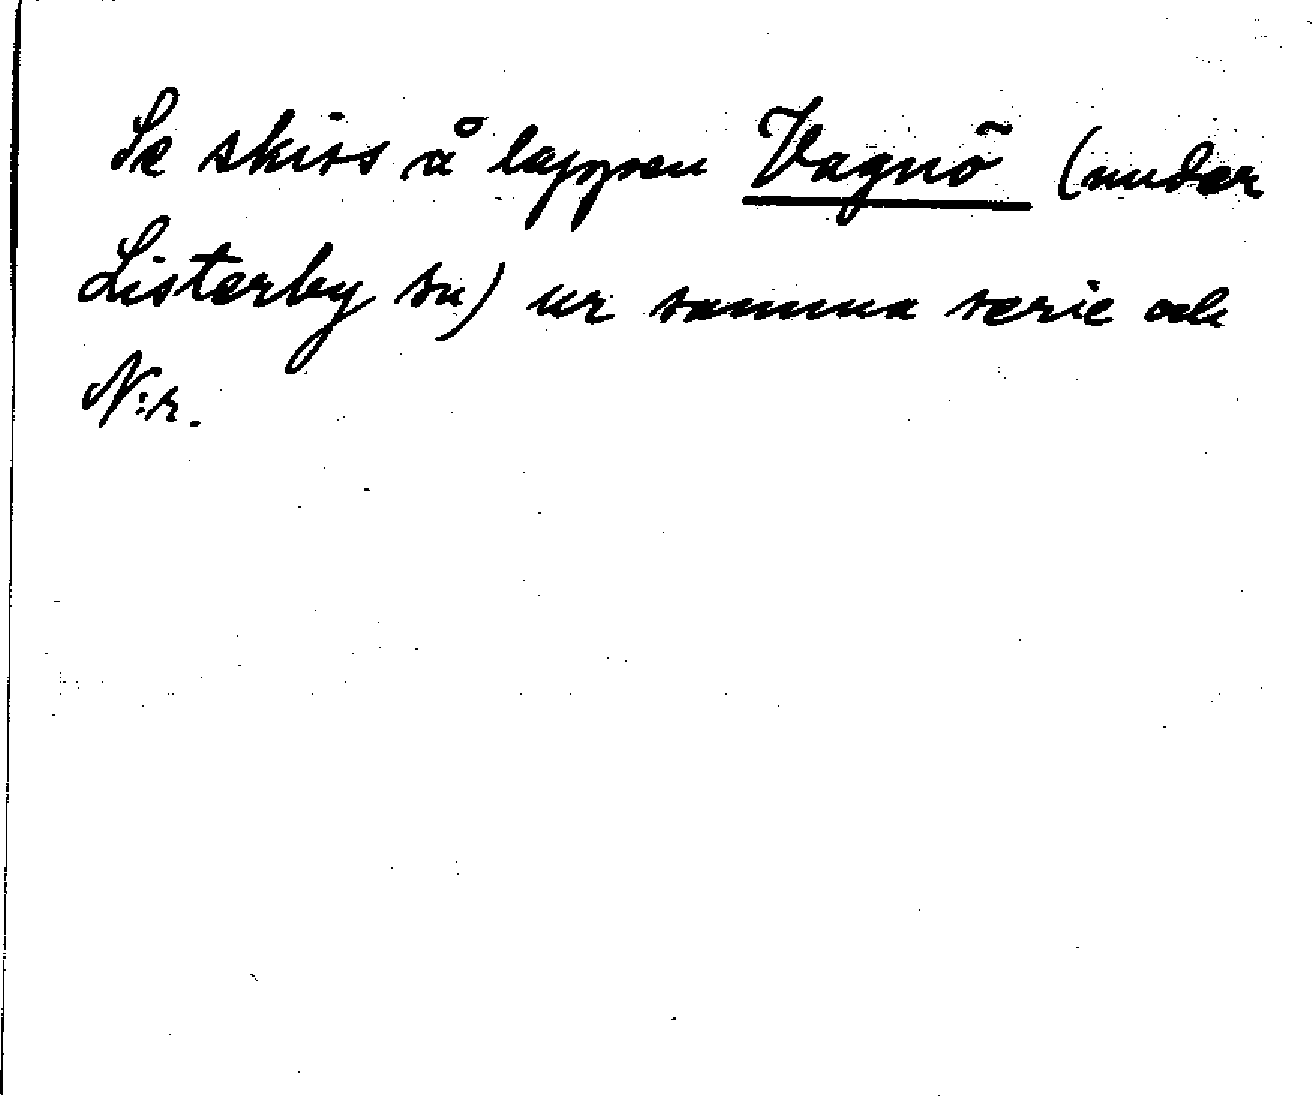 Se skiss å lappen Vagnö (under
Listerby sn) ur samma serie och
N:r.